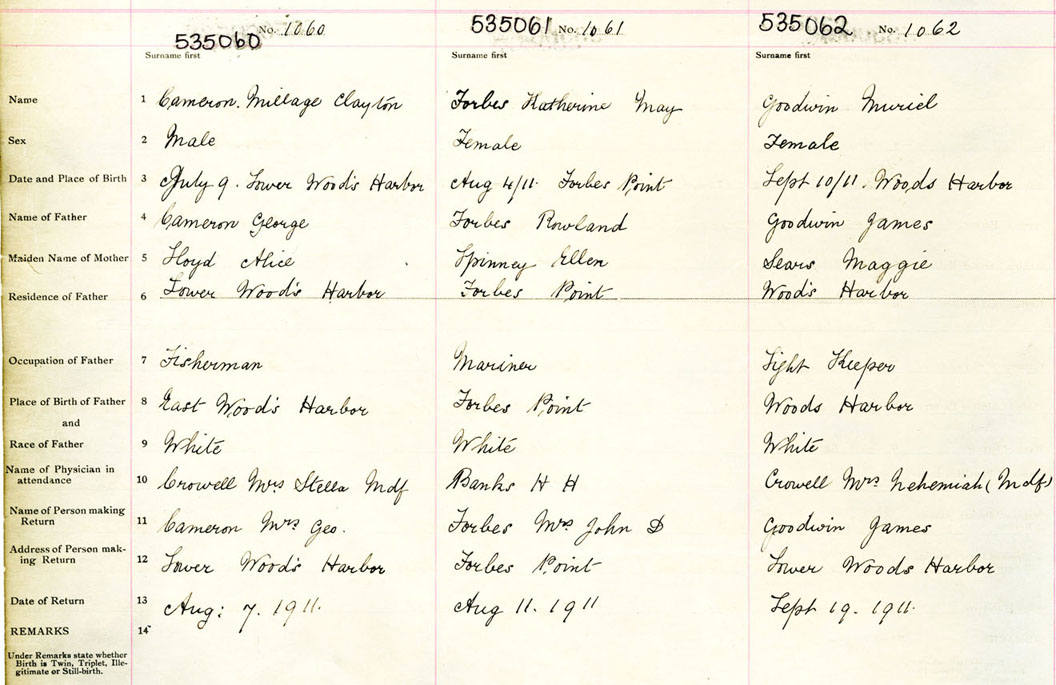 535060 No. 1060 535061 No. 1061 535062 No. 1062
Surname first Surname first Surname first
Name 1 Cameron. Millage Clayton Forbes Katherine May Goodwin Muriel
Sex 2 Male Female Female
Date and Place of Birth 3 July 9. Lower Wood's Harbor Aug 4/11. Forbes Point Sept 10/11. Woods Harbor
Name of Father 4 Cameron George Forbes Rowland Goodwin James
Maiden Name of Mother 5 Lloyd Alice Spinney Ellen Sears Maggie
Residence of Father 6 Lower Wood's Harbor Forbes Point Wood's Harbor
Occupation of Father 7 Fisherman Mariner Light Keeper
Place of Birth of Father 8 East Wood's Harbor Forbes Point Woods Harbor
and
Race of Father 9 White White White
Name of Physician in
attendance 10 Crowell Mrs Stella Mdf Banks H H Crowell Mrs Nehemiah (Mdf)
Name of Person making
Return 11 Cameron Mrs Geo. Forbes Mrs John D Goodwin James
Address of Person mak-
ing Return 12 Lower Wood's Harbor Forbes Point Lower Woods Harbor
Date of Return 13 Aug: 7. 1911. Aug 11. 1911 Sept 19. 1911.
REMARKS 14
Under Remarks state whether
Birth is Twin, Triplet, Ille-
gitimate or Still-birth.